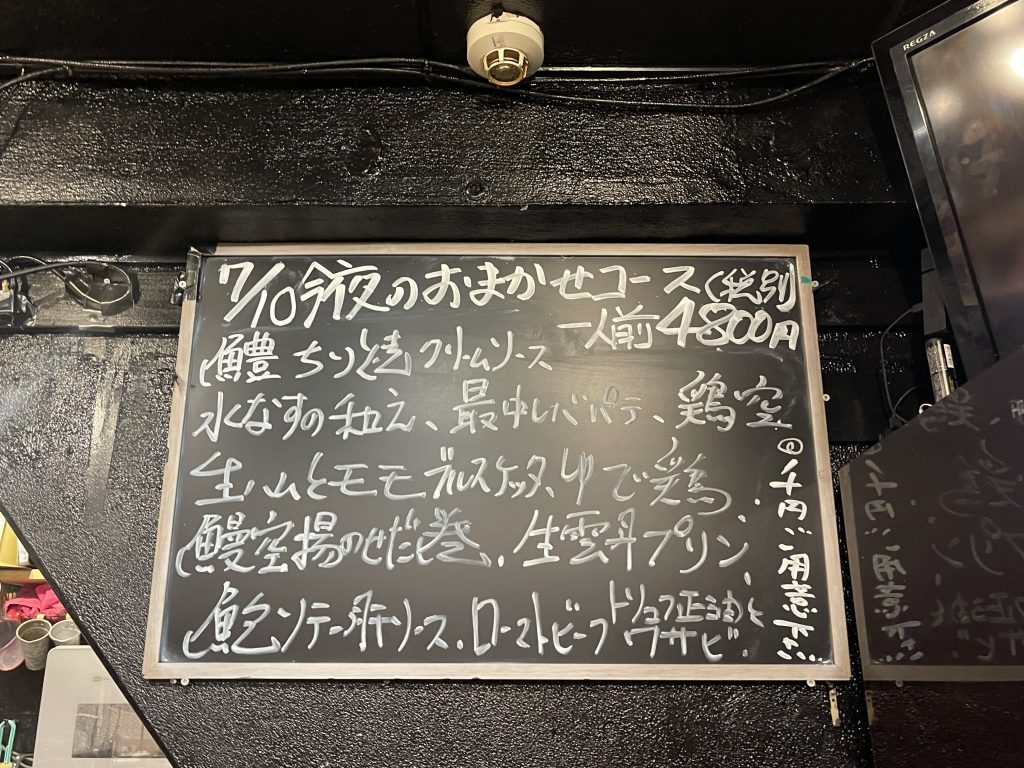 REGZA
7/10今夜のおまかせコース(税別)
一人前4800円
鱧ちりと焼クリームソース
水なすの和え、最中レバパテ、鶏空
生ハムとモモブルスケッタ、ゆで鶏、
鰻空揚のせだし巻、生雲丹プリン、
鮑ソテー肝ソース、ローストビーフトリュフ正油と
ワサビ
◎千円ご用意下